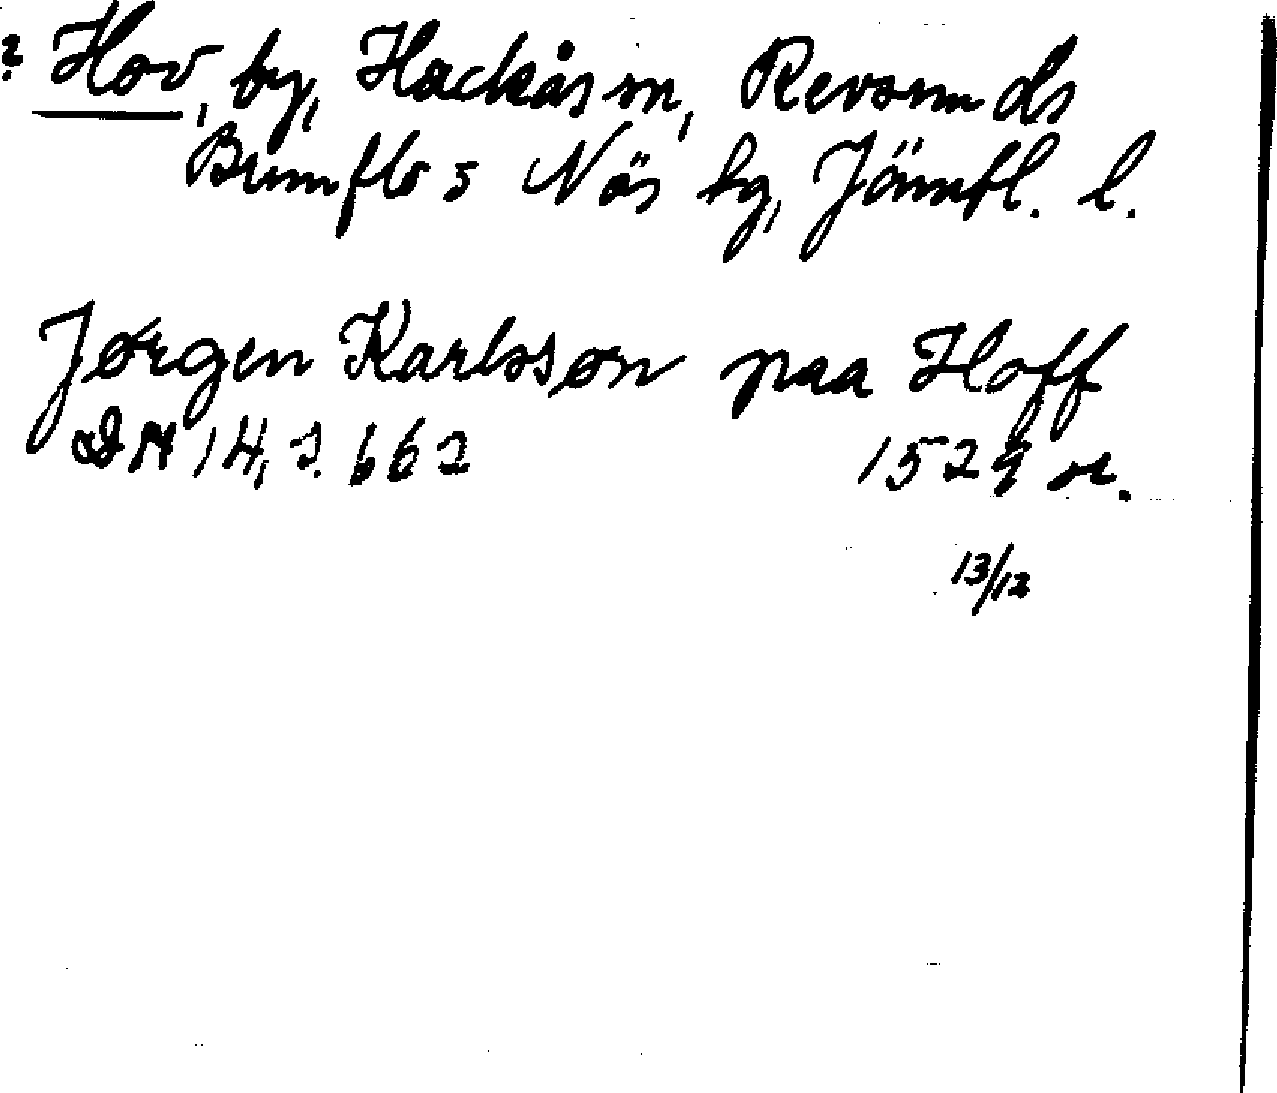 ? Hov, by, Hackås sn, Revsunds
Brunflo o Näs hg, Jämtl. l.
Jørgen Karlsson paa Hoff
DN 14, s. 662 1529 or.
13/12